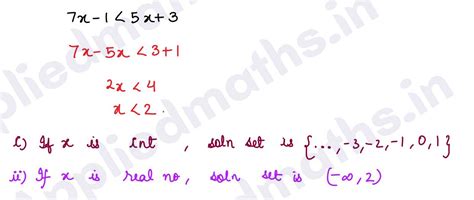 7x-1<5x+3
7x-5x<3+1
2x<4
x<2.
i) If x is int, soln set is {..., -3,-2,-1,0,1}
ii) If x is real no, soln set is (-∞,2)
pliedmaths.in
Appliedmaths.in